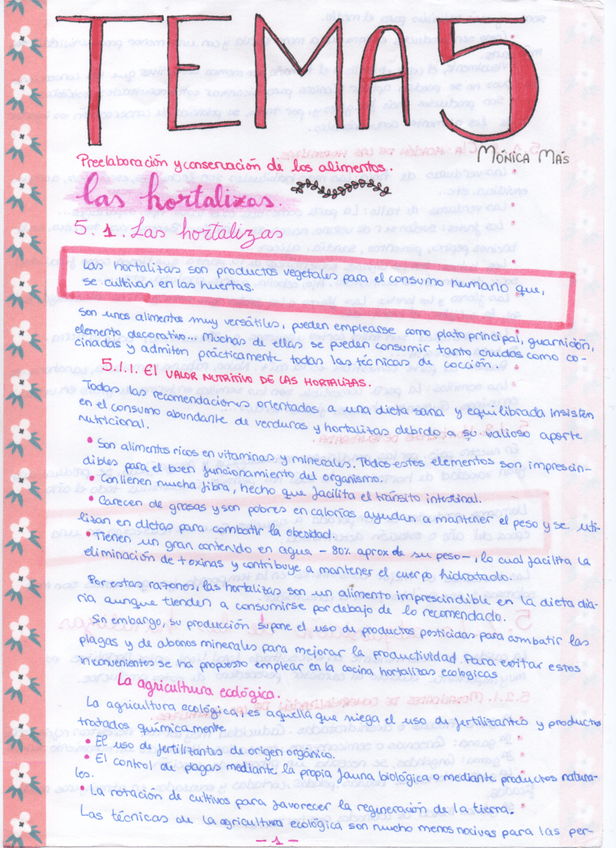 TEMA 5
MÓNICA MÁS
Preelaboración y conservación de los alimentos.
las hortalizas.
5.1. Las hortalizas
Las hortalizas son productos vegetales para el consumo humano que,
se cultivan en las huertas.
Son unos alimentos muy versátiles, pueden emplearse como plato principal, guarnición,
elemento decorativo... Muchas de ellas se pueden consumir tanto crudas como co-
cinadas y admiten prácticamente todas las técnicas de cocción.
5.1.1. El VALOR NUTRITIVO DE LAS HORTALIZAS.
Todas las recomendaciones orientadas a una dieta sana y equilibrada insisten
en el consumo abundante de verduras y hortalizas debido a su valioso aporte
nutricional.
• Son alimentos ricos en vitaminas y minerales. Todos estos elementos son imprescin-
dibles para el buen funcionamiento del organismo.
• Contienen mucha fibra, hecho que facilita el tránsito intestinal.
• Carecen de grasas y son pobres en calorías ayudan a mantener el peso y se uti-
lizan en dietas para combatir la obesidad.
• Tienen un gran contenido en agua - 80% aprox de su peso-, lo cual facilita la
eliminación de toxinas y contribuye a mantener el cuerpo hidratado.
Por estas razones, las hortalizas son un alimento imprescindible en la dieta dia-
ria aunque tienden a consumirse por debajo de lo recomendado.
Sin embargo, su producción supone el uso de productos pesticidas para combatir las
plagas y de abonos minerales para mejorar la productividad. Para evitar estos
inconvenientes se ha propuesto emplear en la cocina hortalizas ecológicas.
La agricultura ecológica.
La agricultura ecológica, es aquella que niega el uso de fertilizantes y productos
tratados químicamente.
• El uso de fertilizantes de origen orgánico.
• El control de plagas mediante la propia fauna biológica o mediante productos natura-
les.
• La rotación de cultivos para favorecer la regeneración de la tierra.
Las técnicas de la agricultura ecológica son mucho menos nocivas para las per-
- 1 -